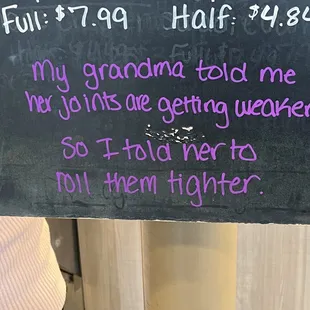 Full: $7.99 Half: $4.84
My grandma told me
her joints are getting weaker
So I told her to
roll them tighter.